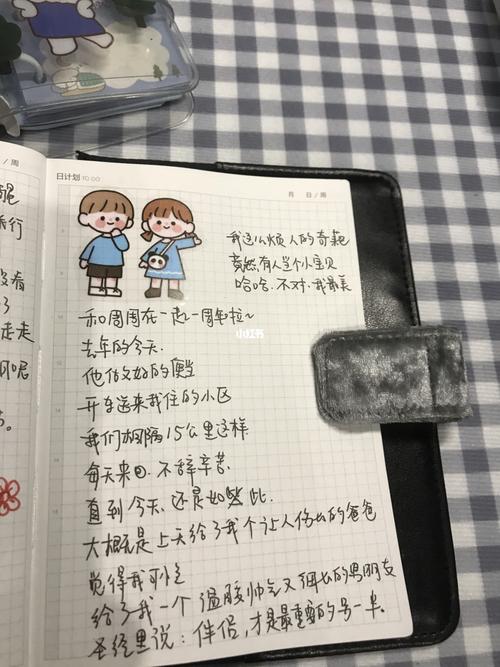 日计划 TO DO
月 日/周
我这么烦人的奇葩
竟然有人当个小宝贝
哈哈.不对.我最美
和周周在一起一周年啦~
去年的今天.
他做好的便当
开车送来我住的小区
我们相隔15公里这样
每天来回.不辞辛苦.
直到今天.还是如此.
大概是上天给了我个让人伤心的爸爸
觉得我可怜
给了我一个温暖帅气又细心的男朋友
圣经里说:伴侣,才是最重要的另一半.
/周
行
没看
了
走走
小红书